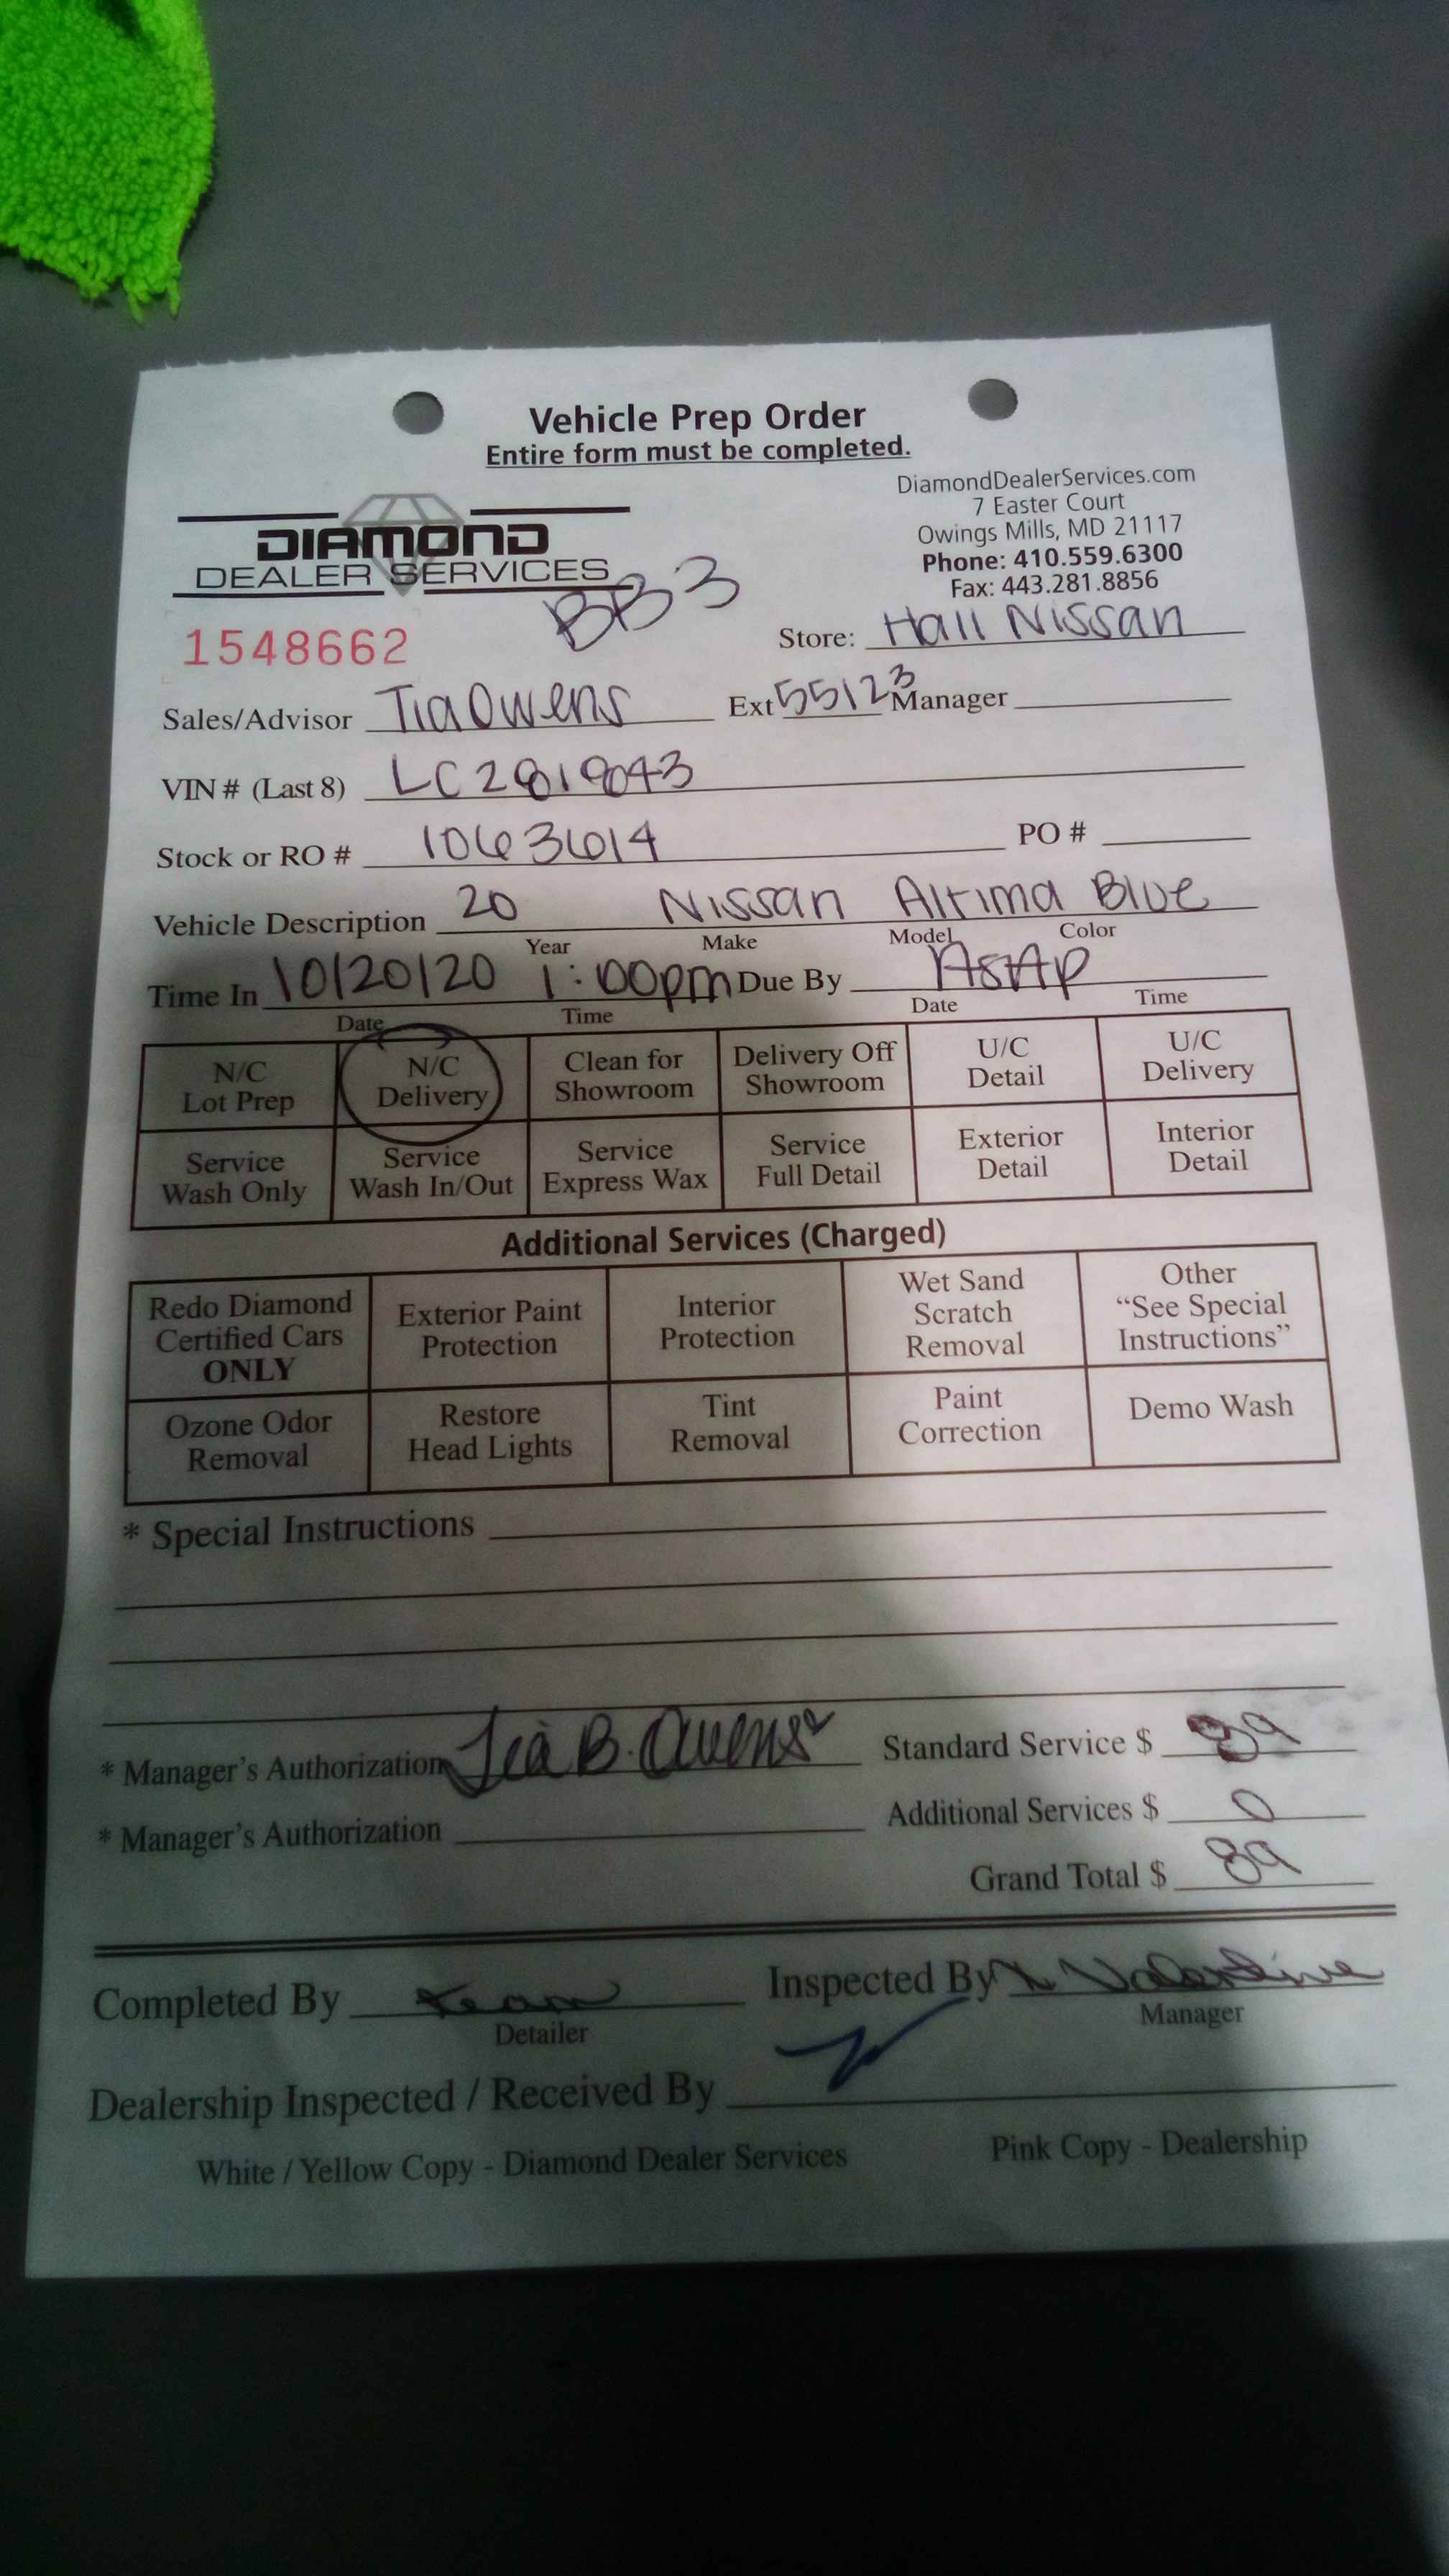 Vehicle Prep Order
Entire form must be completed.
DiamondDealerServices.com
7 Easter Court
Owings Mills, MD 21117
Phone: 410.559.6300
Fax: 443.281.8856
DIAMOND
DEALER SERVICES
BB3
1548662
Store: Hall Nissan
Sales/Advisor Tia Owens Ext 55123 Manager
VIN # (Last 8) LC2819043
Stock or RO # 1063614 PO #
Vehicle Description 20 Nissan Altima Blue
Year Make Model Color
Time In 10/20/20 1:00pm Due By ASAP
Date Time Date Time
N/C Lot Prep N/C Delivery Clean for Showroom Delivery Off Showroom U/C Detail U/C Delivery
Service Wash Only Service Wash In/Out Service Express Wax Service Full Detail Exterior Detail Interior Detail
Additional Services (Charged)
Redo Diamond Certified Cars ONLY Exterior Paint Protection Interior Protection Wet Sand Scratch Removal Other "See Special Instructions"
Ozone Odor Removal Restore Head Lights Tint Removal Paint Correction Demo Wash
* Special Instructions
* Manager's Authorization Tia B. Owens Standard Service $ 89
* Manager's Authorization Additional Services $ 0
Grand Total $ 89
Completed By Team Inspected By Valentine
Detailer Manager
Dealership Inspected / Received By
White / Yellow Copy - Diamond Dealer Services Pink Copy - Dealership